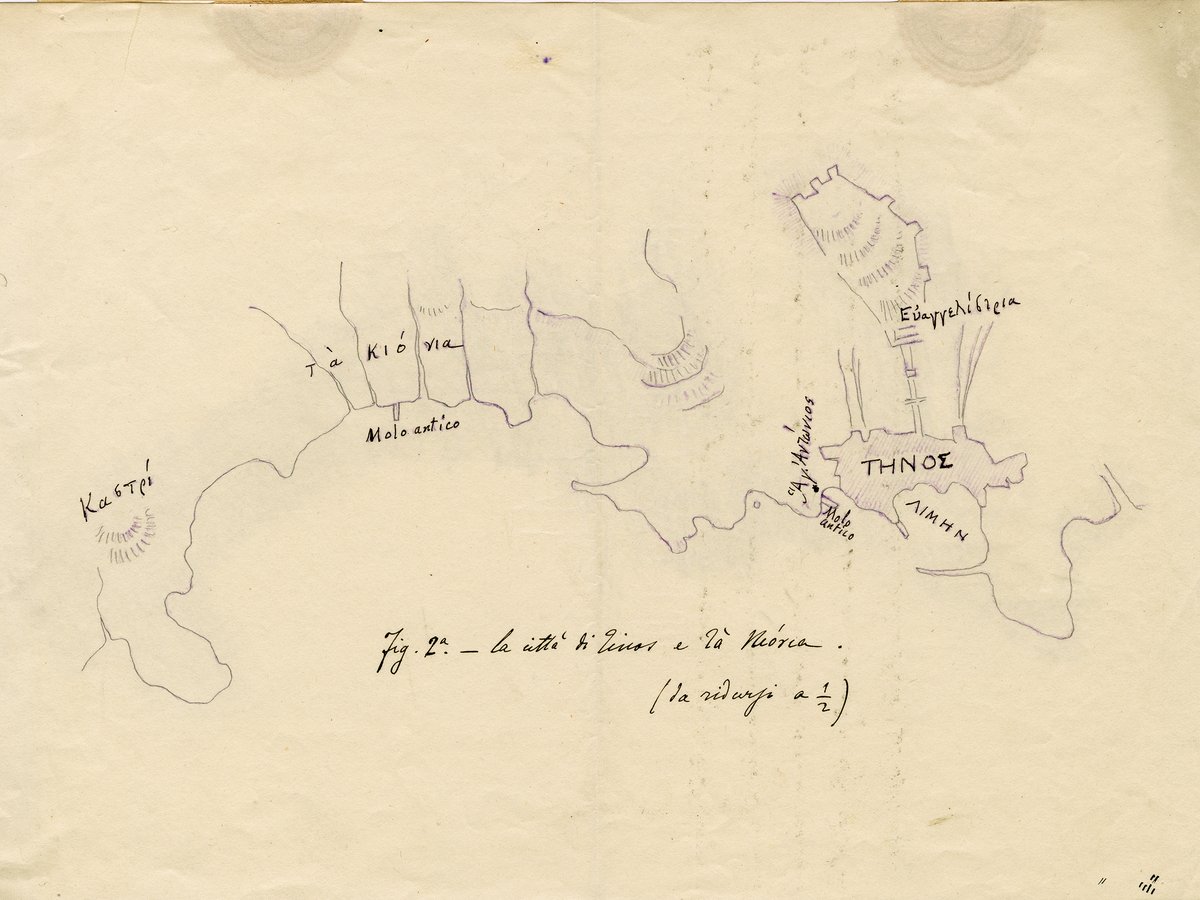 Εὐαγγελίστρια
τὰ Κιόνια
Molo antico
Ἅγ. Ἀντώνιος
ΤΗΝΟΣ
Καστρί
ΛΙΜΗΝ
Molo
antico
Fig. 2ª. — la città di Tinos e τὰ Κιόνια.
(da ridursi a ½)